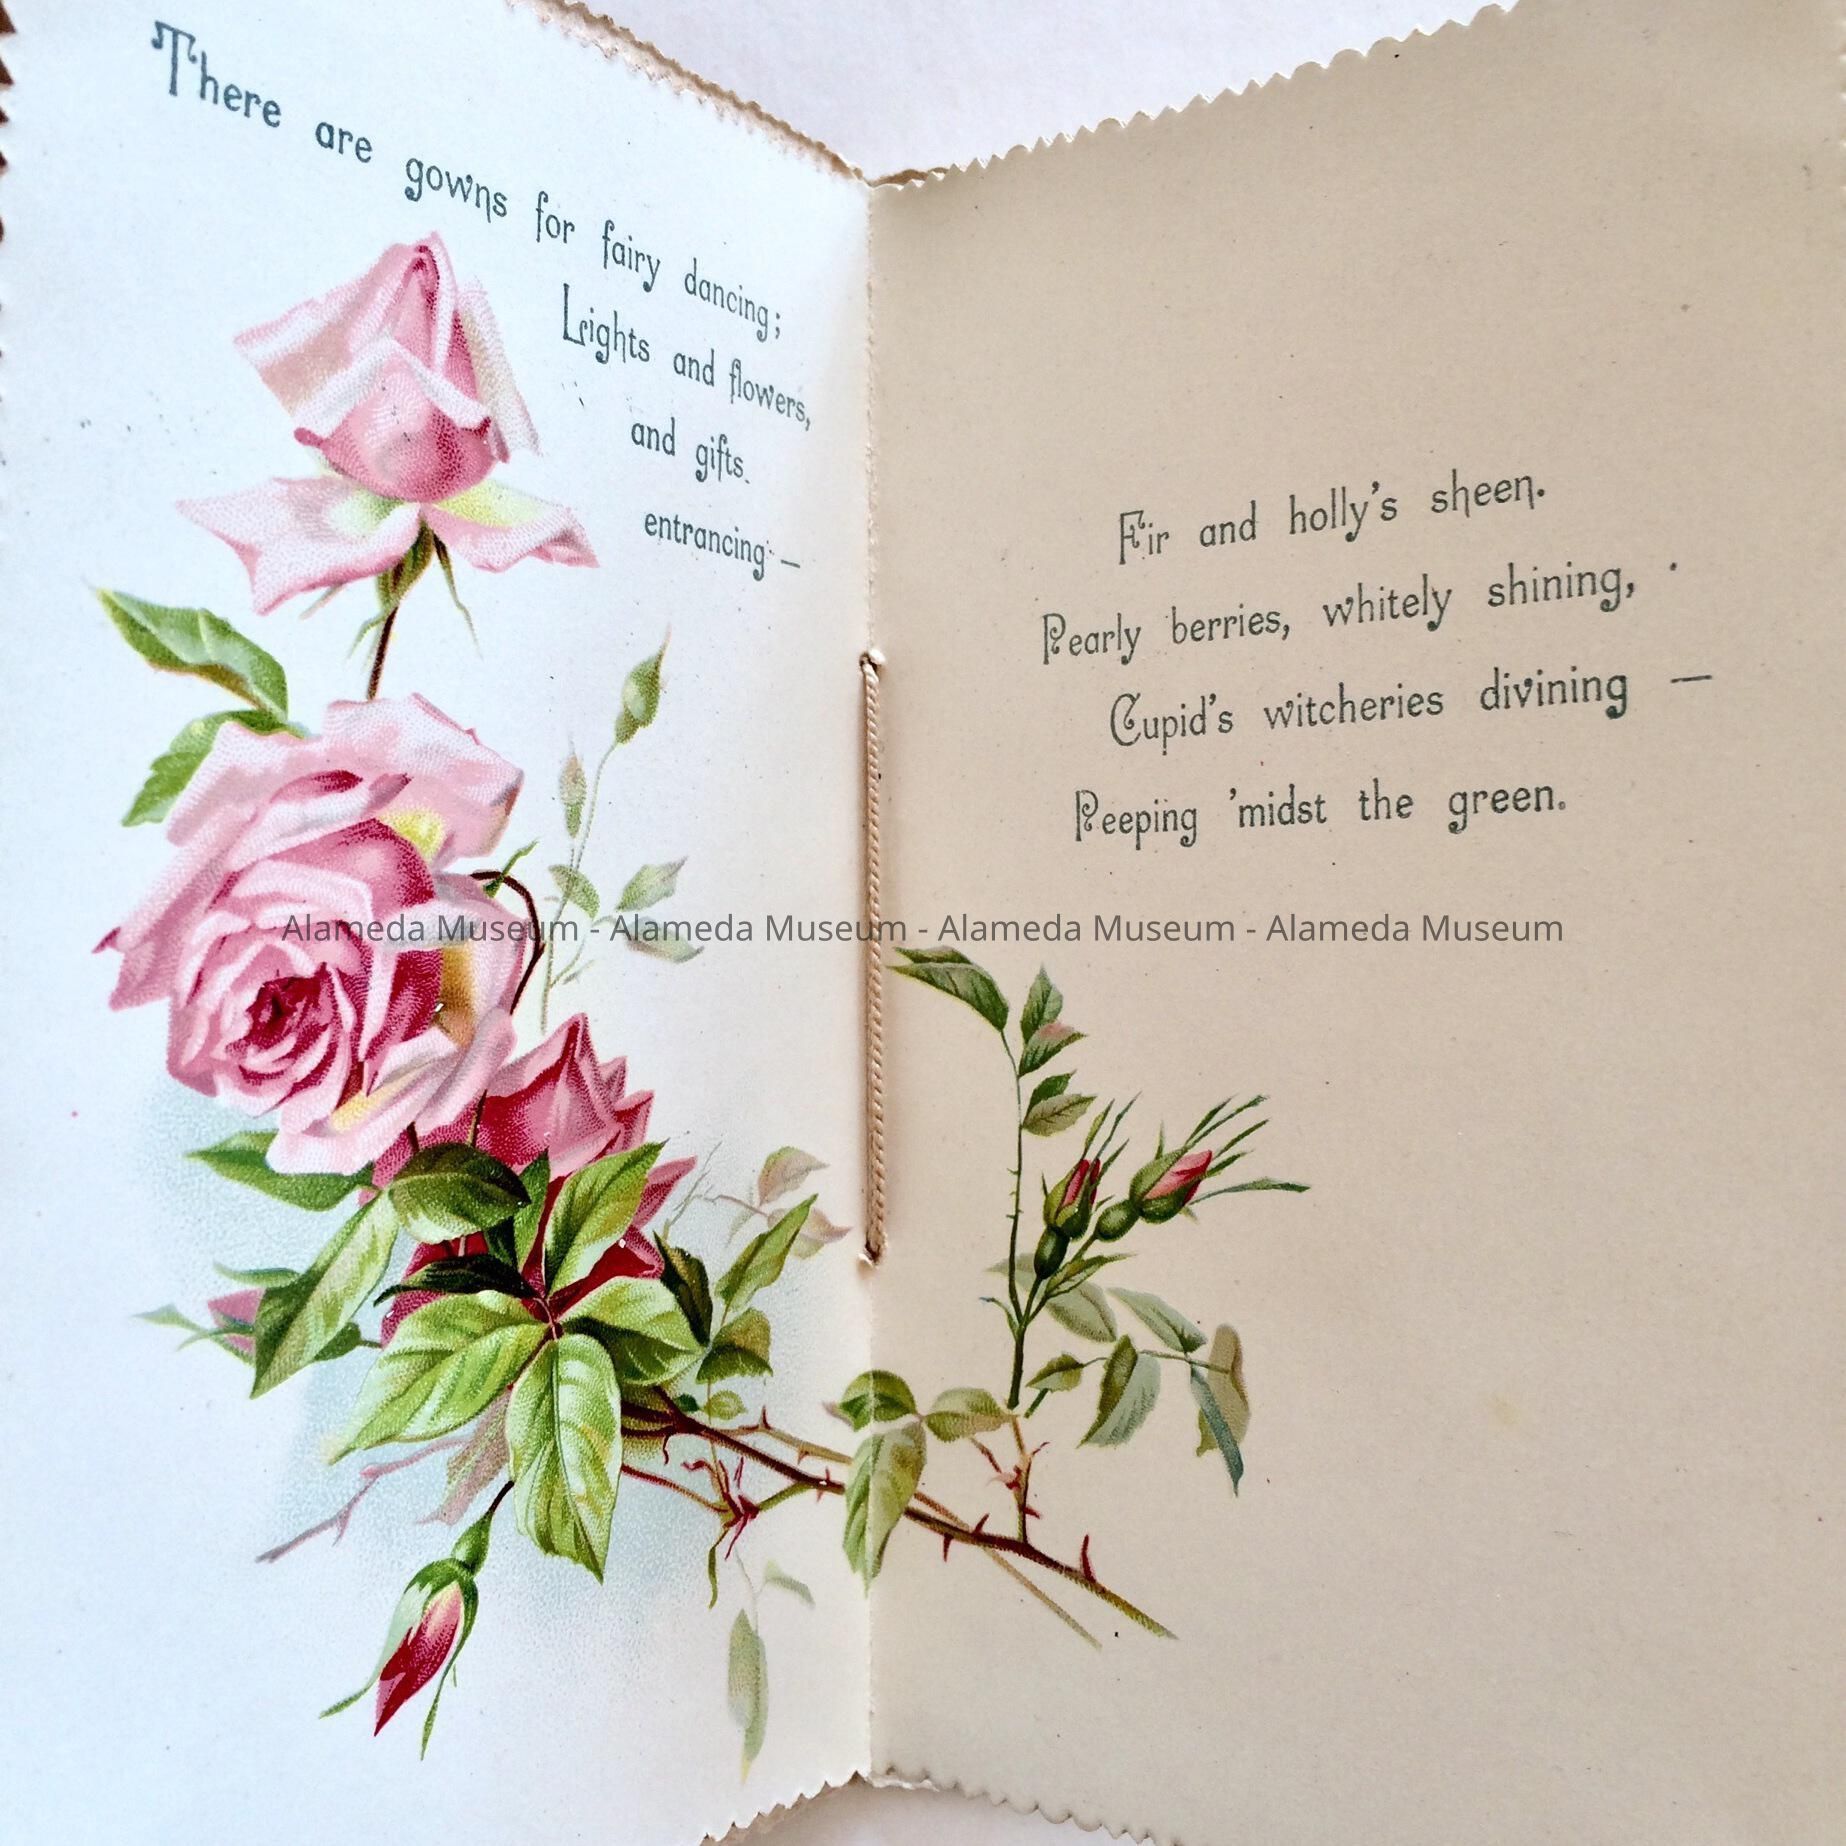 There are gowns for fairy dancing;
Lights and flowers,
and gifts.
entrancing —
Fir and holly's sheen.
Pearly berries, whitely shining,
Cupid's witcheries divining —
Peeping 'midst the green.
Alameda Museum - Alameda Museum - Alameda Museum - Alameda Museum